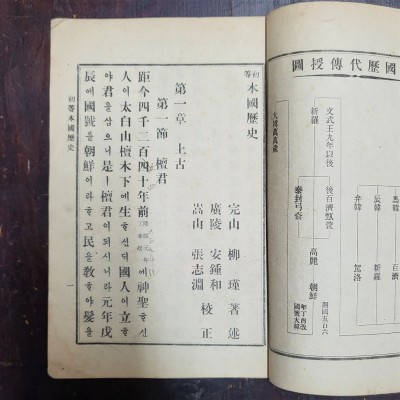 國歷代傳授圖
文武王九年以後
新羅
後百濟甄萱
泰封弓裔
高麗
朝鮮
辰韓
弁韓
百濟
新羅
駕洛
初等本國歷史
完山 柳瑾 著述
廣陵 安鍾和
嵩山 張志淵 校正
第一章 上古
第一節 檀君
距今四千二百四十年前에神聖ᄒᆞ신
人이太白山檀木下에生ᄒᆞ신ᄃᆡ國人이立ᄒᆞ
야君을삼으니是ᄂᆞᆫ檀君이시니라元年戊
辰에國號를朝鮮이라ᄒᆞ고民을敎ᄒᆞ야髮을
初等本國歷史
一